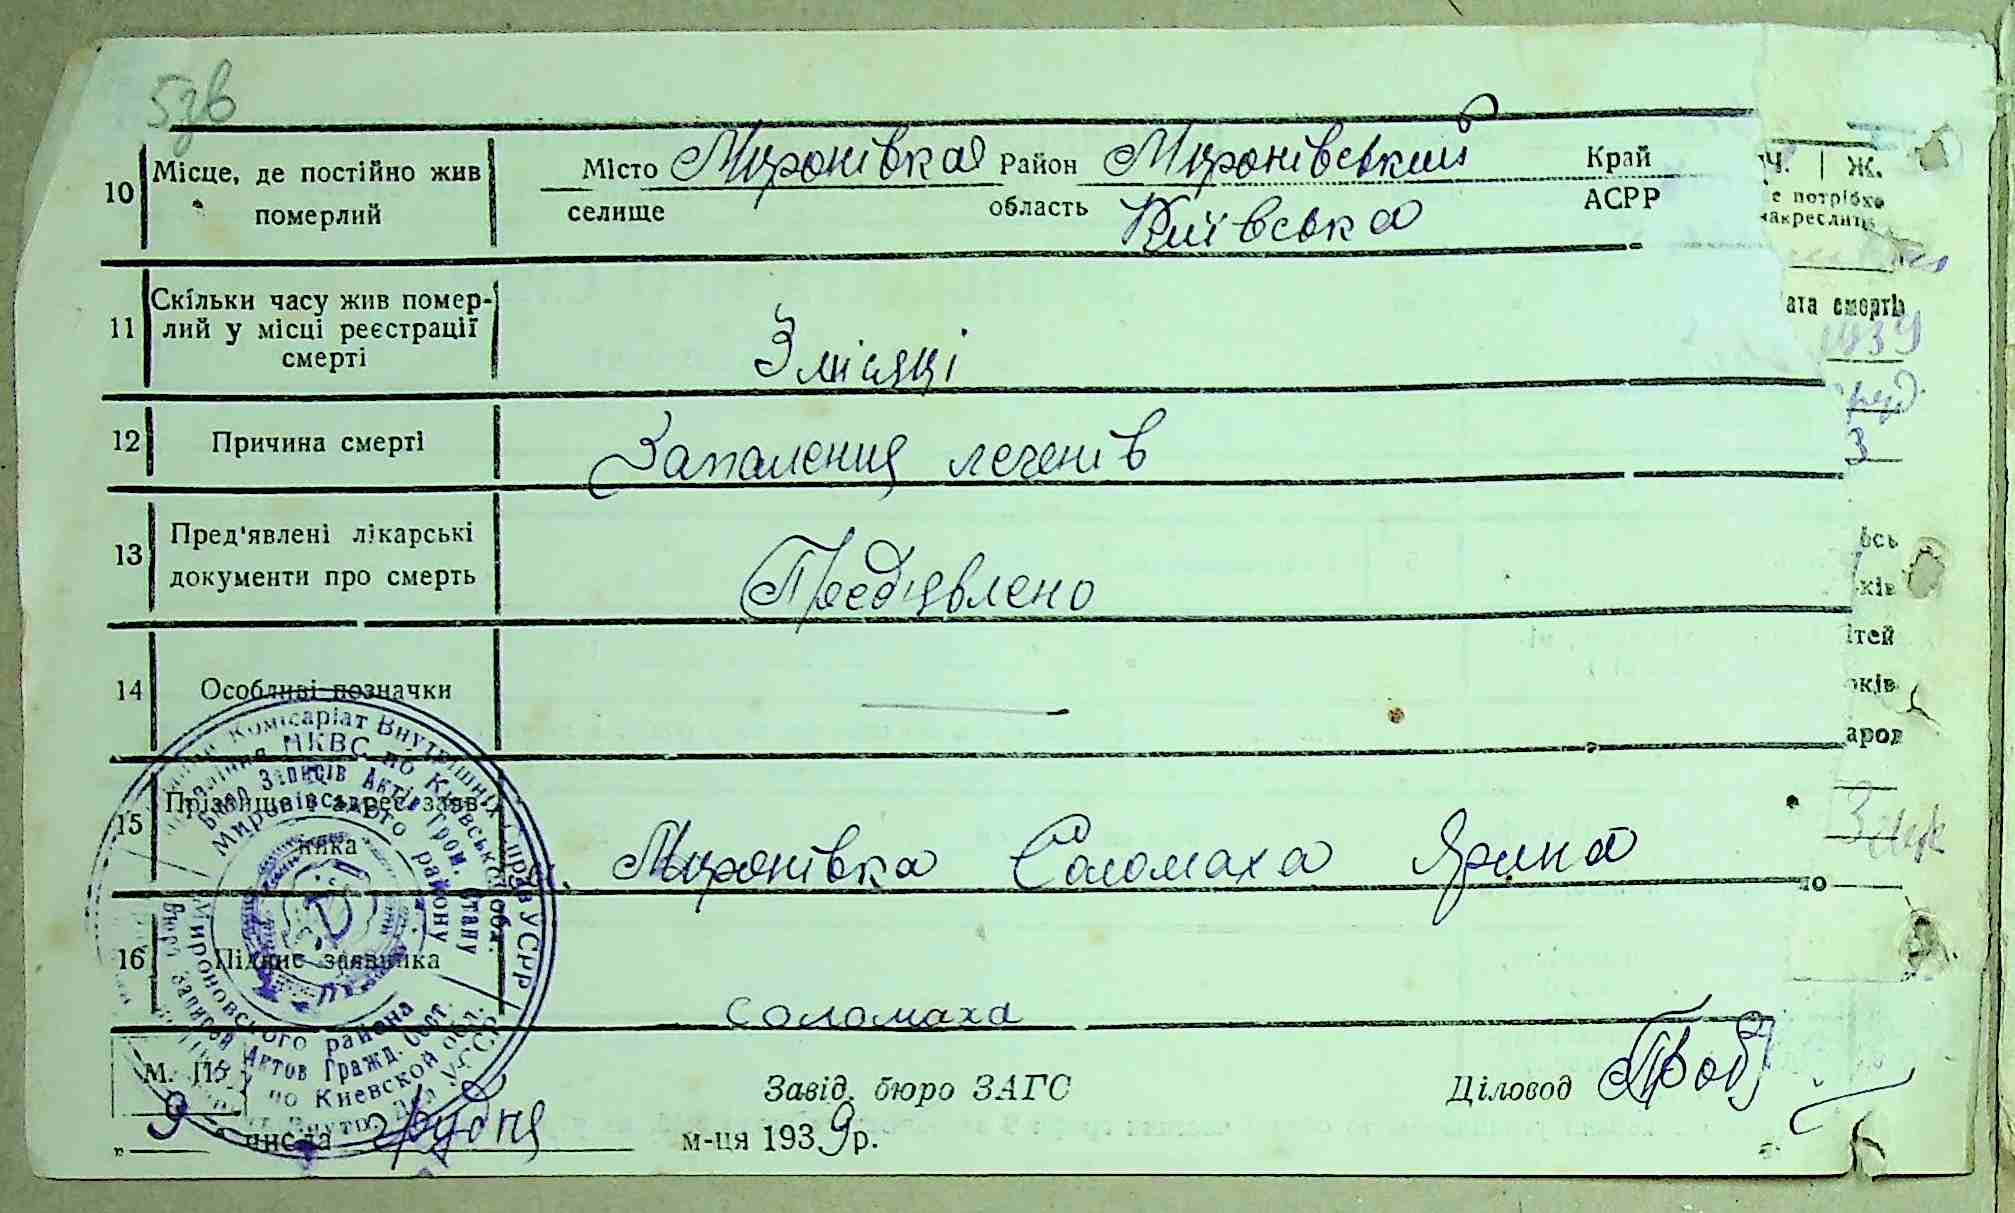 5зв
10 Місце, де постійно жив померлий
Місто Миронівка Район Миронівський Край
селище область Київська АСРР
Ч. | Ж.
е потрібно
накреслить
11 Скільки часу жив помер-
лий у місці реєстрації
смерті
3 місяці
ата смерті
1939
12 Причина смерті Запалення легенів
3
13 Пред'явлені лікарські
документи про смерть
Пред'явлено
ось
ків
ітей
14 Особливі позначки —
оків
арод
15 Прізвище і адрес заяв-
ника
Миронівка Соломаха Ярина
16 Підпис заявника
Соломаха
Комісаріат Внутрішніх Справ УСРР
Управління НКВС по Київській обл.
Бюро Записів Актів Гром. Стану
Миронівського району
Мироновского района
Бюро Записей Актов Гражд. Сост.
по Киевской обл.
М. П.
Завід. бюро ЗАГС Діловод
„ 9 " числа грудня м-ця 1939 р.